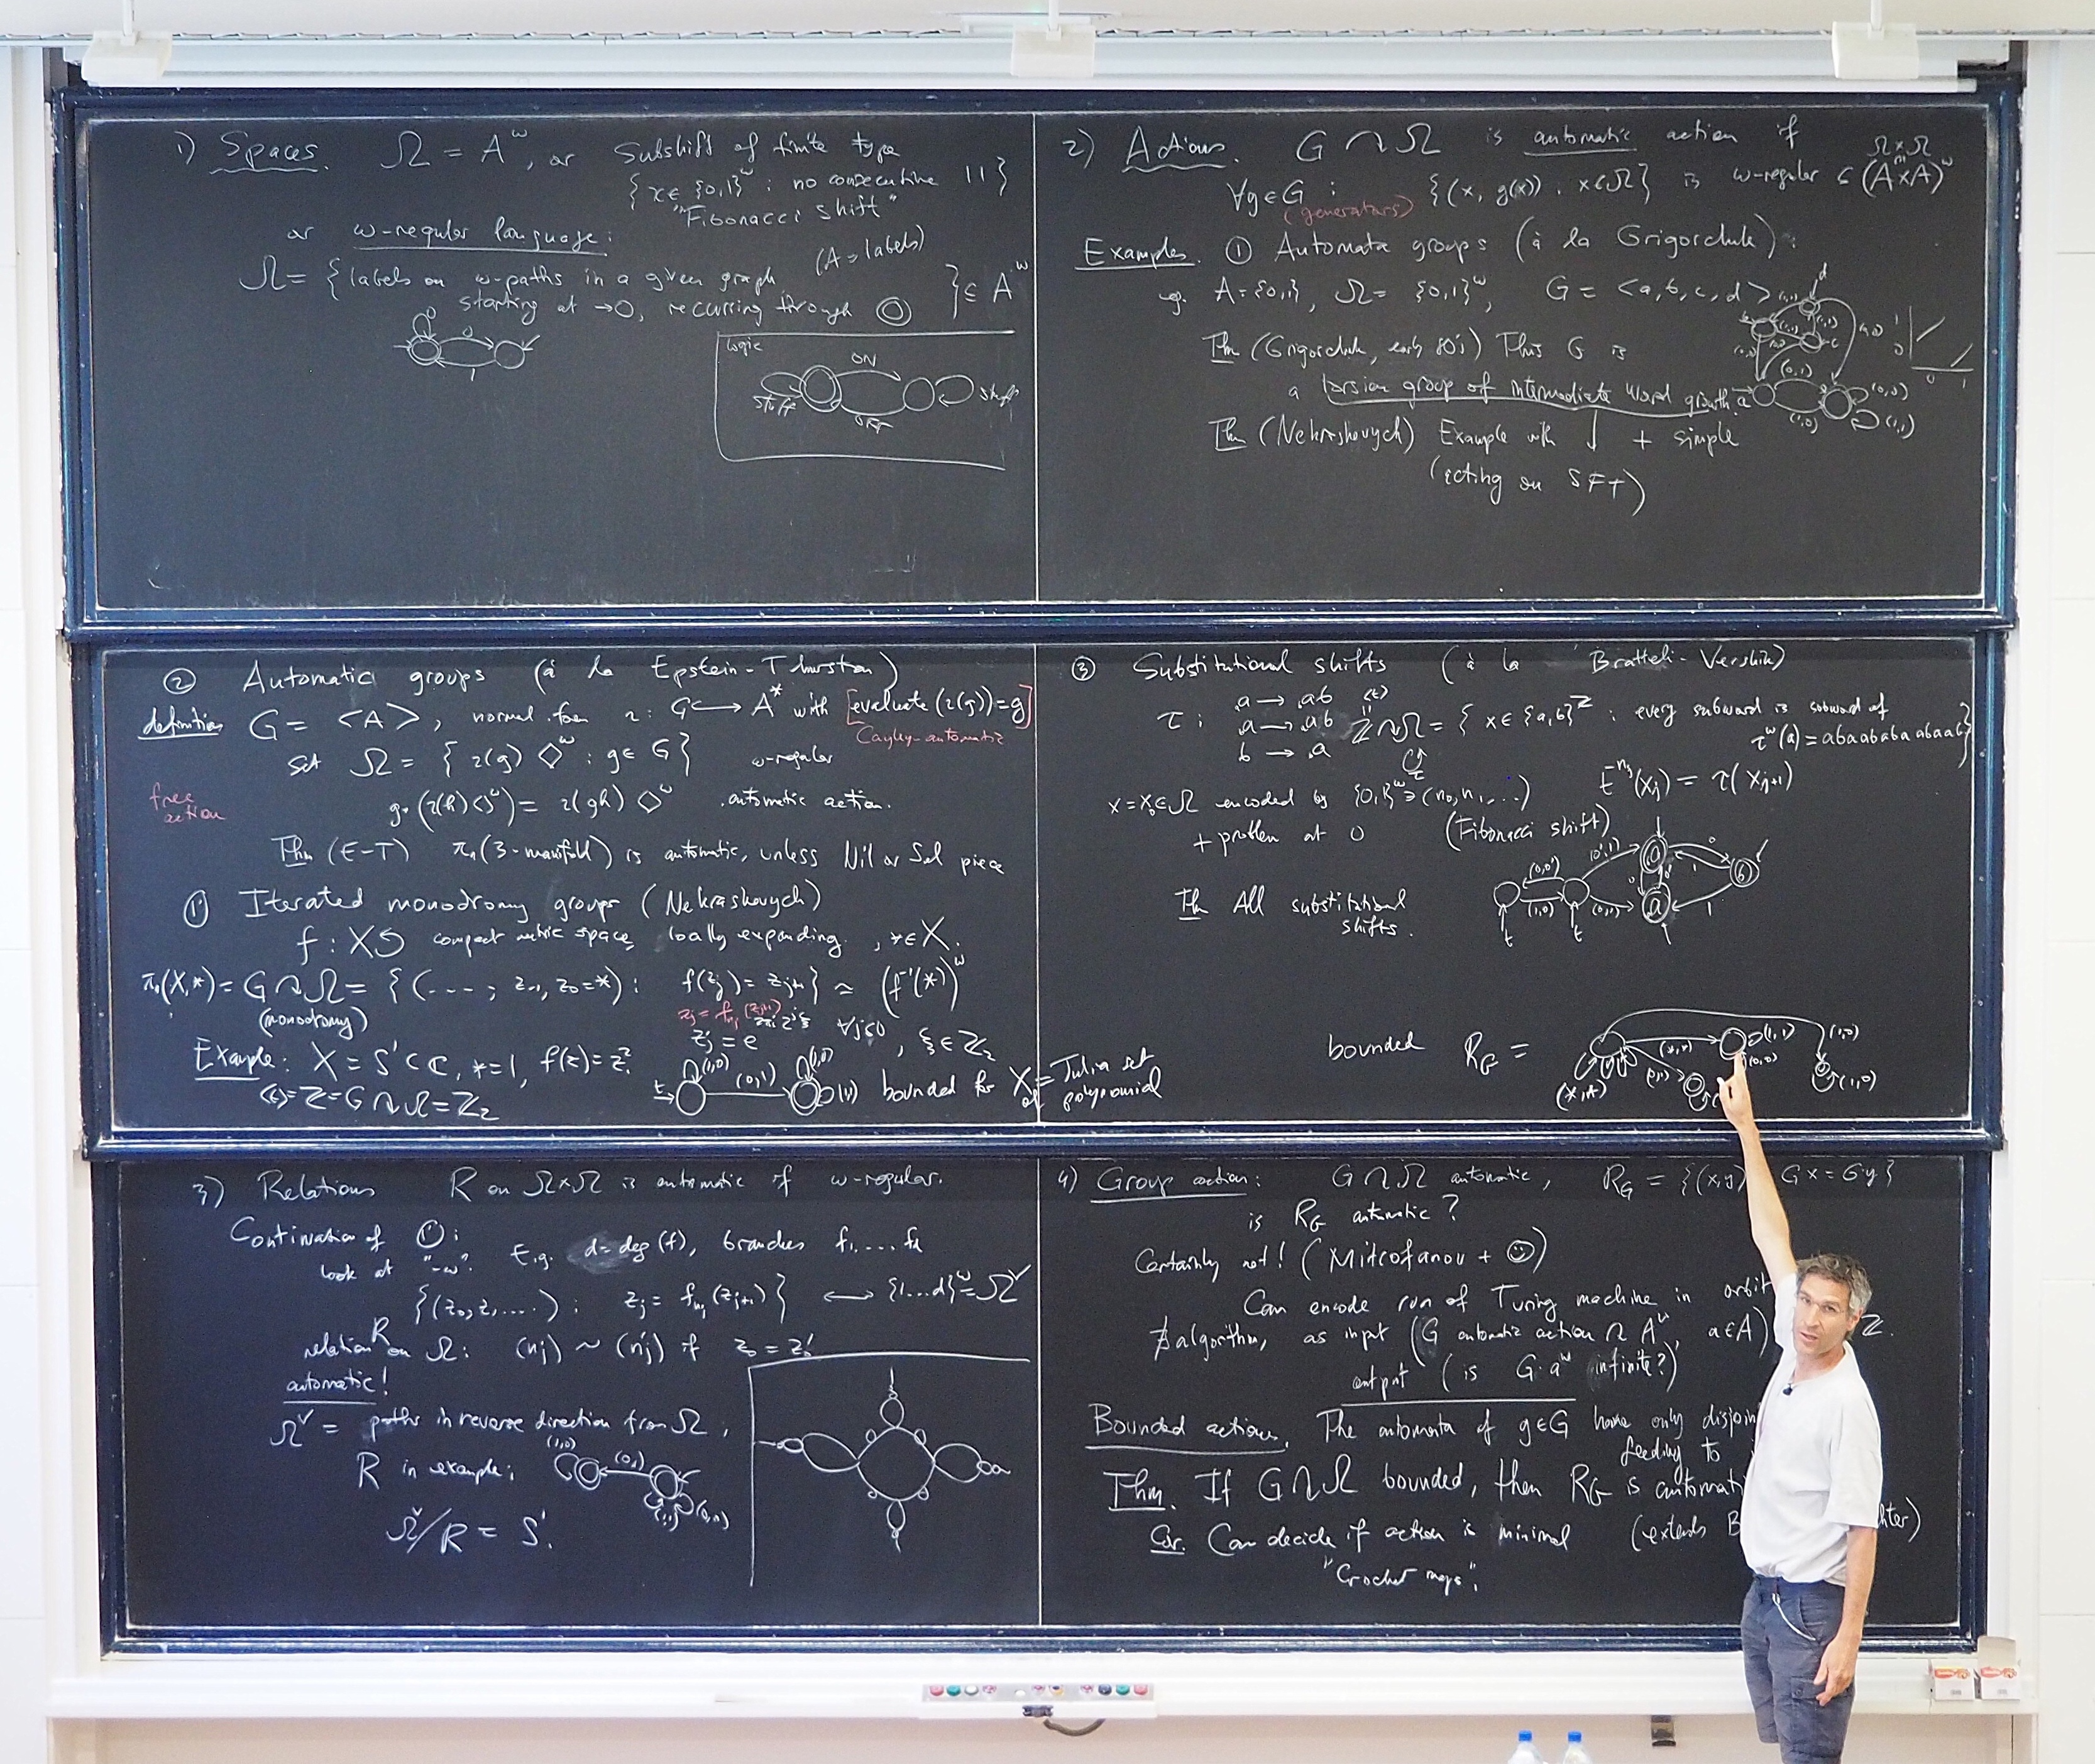 1) Spaces. Ω = A^ω, or Subshift of finite type
{x ∈ {0,1}^ω : no consecutive 11}
"Fibonacci shift"
or ω-regular language:
Ω = {labels on ω-paths in a given graph (A = labels)
starting at →O, recurring through ◎ } ⊆ A^ω
0
0
1
Logic
ON
stuff
stuff
OFF
2) Actions. G ↷ Ω is automatic action if
Ω×Ω
∀g ∈ G : {(x, g(x)) : x ∈ Ω} is ω-regular ⊆ (A×A)^ω
(generators)
Examples. ① Automata groups (à la Grigorchuk):
eg. A = {0,1}, Ω = {0,1}^ω, G = <a, b, c, d>
Thm (Grigorchuk, early 80's) This G is
a torsion group of intermediate word growth
Thm (Nekrashevych) Example with ↓ + simple
(acting on SFT)
d
c
a
(0,1)
(1,0)
(0,0)
(1,1)
1
0
0 1
② Automatic groups (à la Epstein-Thurston)
definition G = <A>, normal form η: G ↪ A* with [evaluate(η(g)) = g]
Cayley-automatic
set Ω = {η(g) ◇^ω : g ∈ G} ω-regular
free action
g·(η(h) ◇^ω) = η(gh) ◇^ω automatic action.
Thm (E-T) π₁(3-manifold) is automatic, unless Nil or Sol piece
①' Iterated monodromy groups (Nekrashevych)
f : X↺ compact metric space, locally expanding, * ∈ X.
π₁(X,*) = G ↷ Ω = {(..., z₋₁, z₀=*) : f(z_j) = z_{j+1}} ≃ (f⁻¹(*))^ω
(monodromy)
∀j≤0, ξ ∈ Z₂
Example: X = S¹ ⊂ C, * = 1, f(z) = z².
<t> = Z = G ↷ Ω = Z₂
t
(1,0)
(0,1)
(0,0)
(1,1)
bounded for X = Julia set
of polynomial
③ Substitutional shifts (à la Bratteli-Vershik)
a → ab
<t>
τ : a → ab
Z ↷ Ω = {x ∈ {a,b}^Z : every subword is subword of
b → a
τ^ω(a) = abaababaabaab}
x = x₀ ∈ Ω encoded by {0,1}^ω ∋ (n₀, n₁, ...) t^{n_j}(x_j) = τ(x_{j+1})
+ problem at 0 (Fibonacci shift)
Thm All substitutional
shifts.
(0,0)
(1,0)
(0,1)
0
b
1
a
1
t
t
bounded R_G =
(*,*)
(1,1)
(0,0)
(1,0)
(1,0)
3) Relations R on Ω×Ω is automatic if ω-regular.
Continuation of ①':
look at "-ω". E.g. d = deg(f), branches f₁, ... f_d
{(z₀, z₁ ...) : z_j = f_{n_j}(z_{j+1})} ↔ {1...d}^ω = Ω^∨
relation R on Ω: (n_j) ~ (n'_j) if z₀ = z₀'
automatic!
Ω^∨ = paths in reverse direction from Ω,
R in example:
(1,0)
(0,1)
(1,1)
(0,0)
Ω^∨/R = S¹.
4) Group action: G ↷ Ω automatic, R_G = {(x,y) Gx = Gy}
is R_G automatic?
Certainly not! (Mitrofanov + ☺)
Can encode run of Turing machine in orbit
∄ algorithm, as input (G automatic action ↷ A^ω, a ∈ A)
output (is G·a^ω infinite?)
Bounded actions. The automata of g∈G have only disjoin
feeding to
Thm. If G ↷ Ω bounded, then R_G is automati
Cor. Can decide if action is minimal (extends B
"Crochet maps".